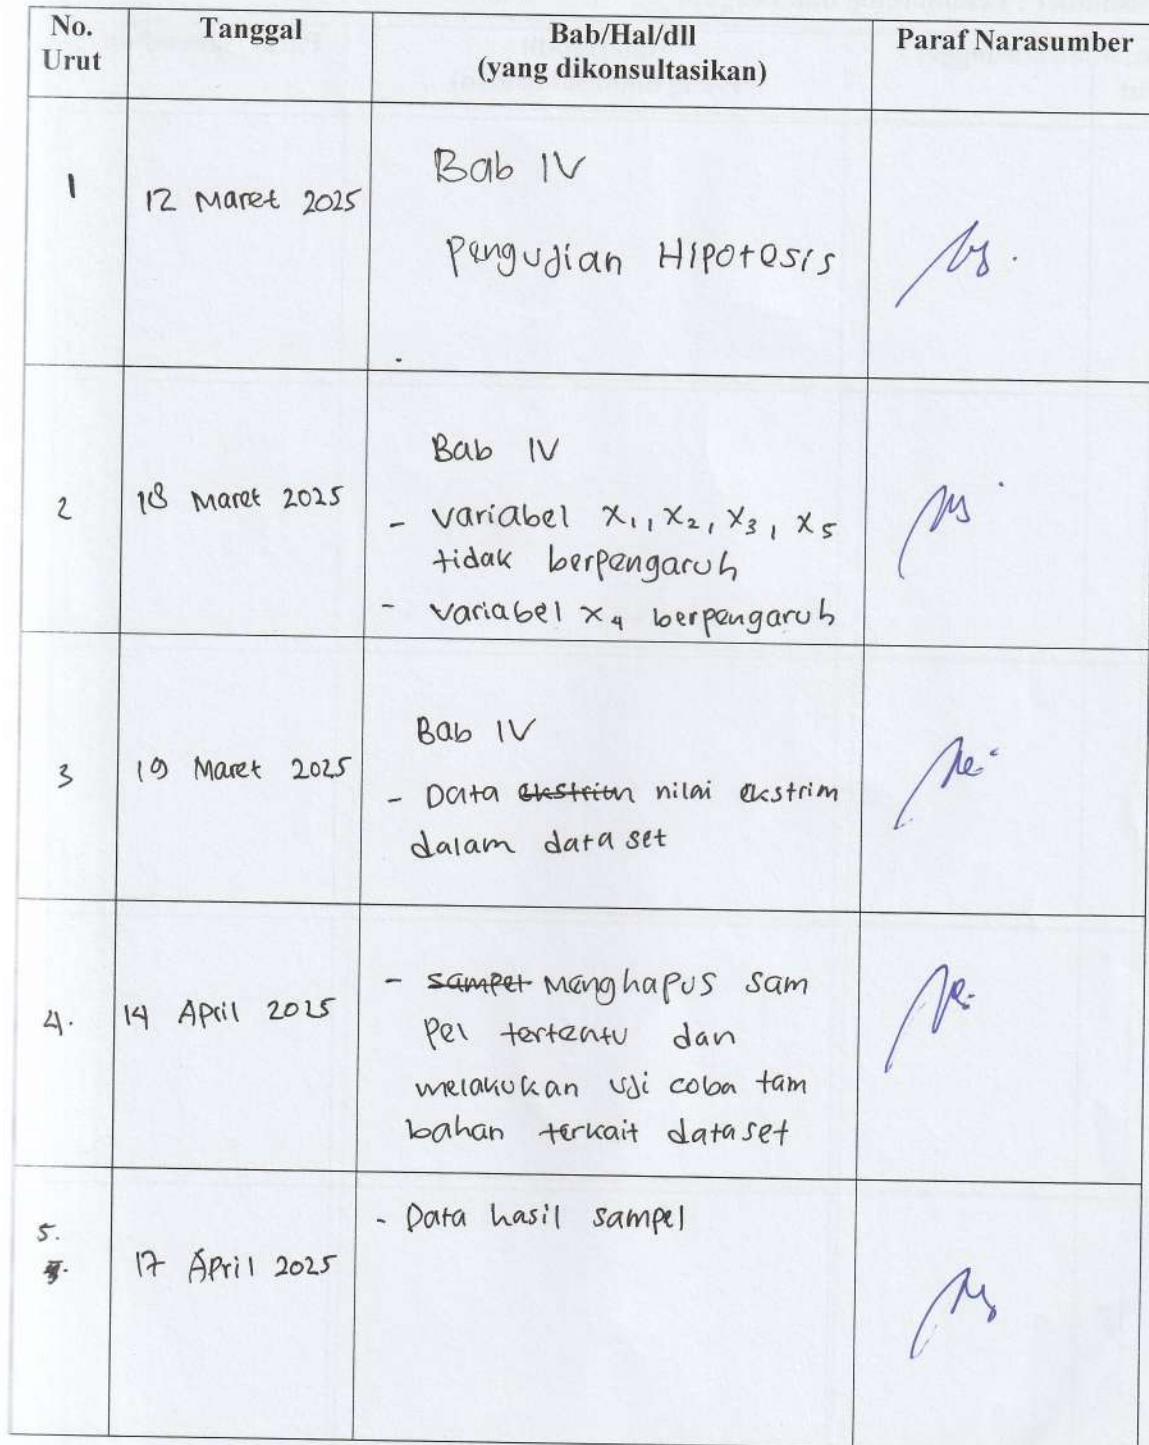 No. Urut Tanggal Bab/Hal/dll (yang dikonsultasikan) Paraf Narasumber
1 12 Maret 2025
Bab IV
Pengujian Hipotesis
2 18 Maret 2025
Bab IV
- variabel x1, x2, x3, x5
tidak berpengaruh
- variabel x4 berpengaruh
3 19 Maret 2025
Bab IV
- Data ekstrim nilai ekstrim
dalam data set
4. 14 April 2025
- sampel Menghapus sam
pel tertentu dan
melakukan uji coba tam
bahan terkait dataset
5. 17 April 2025
- Data hasil sampel